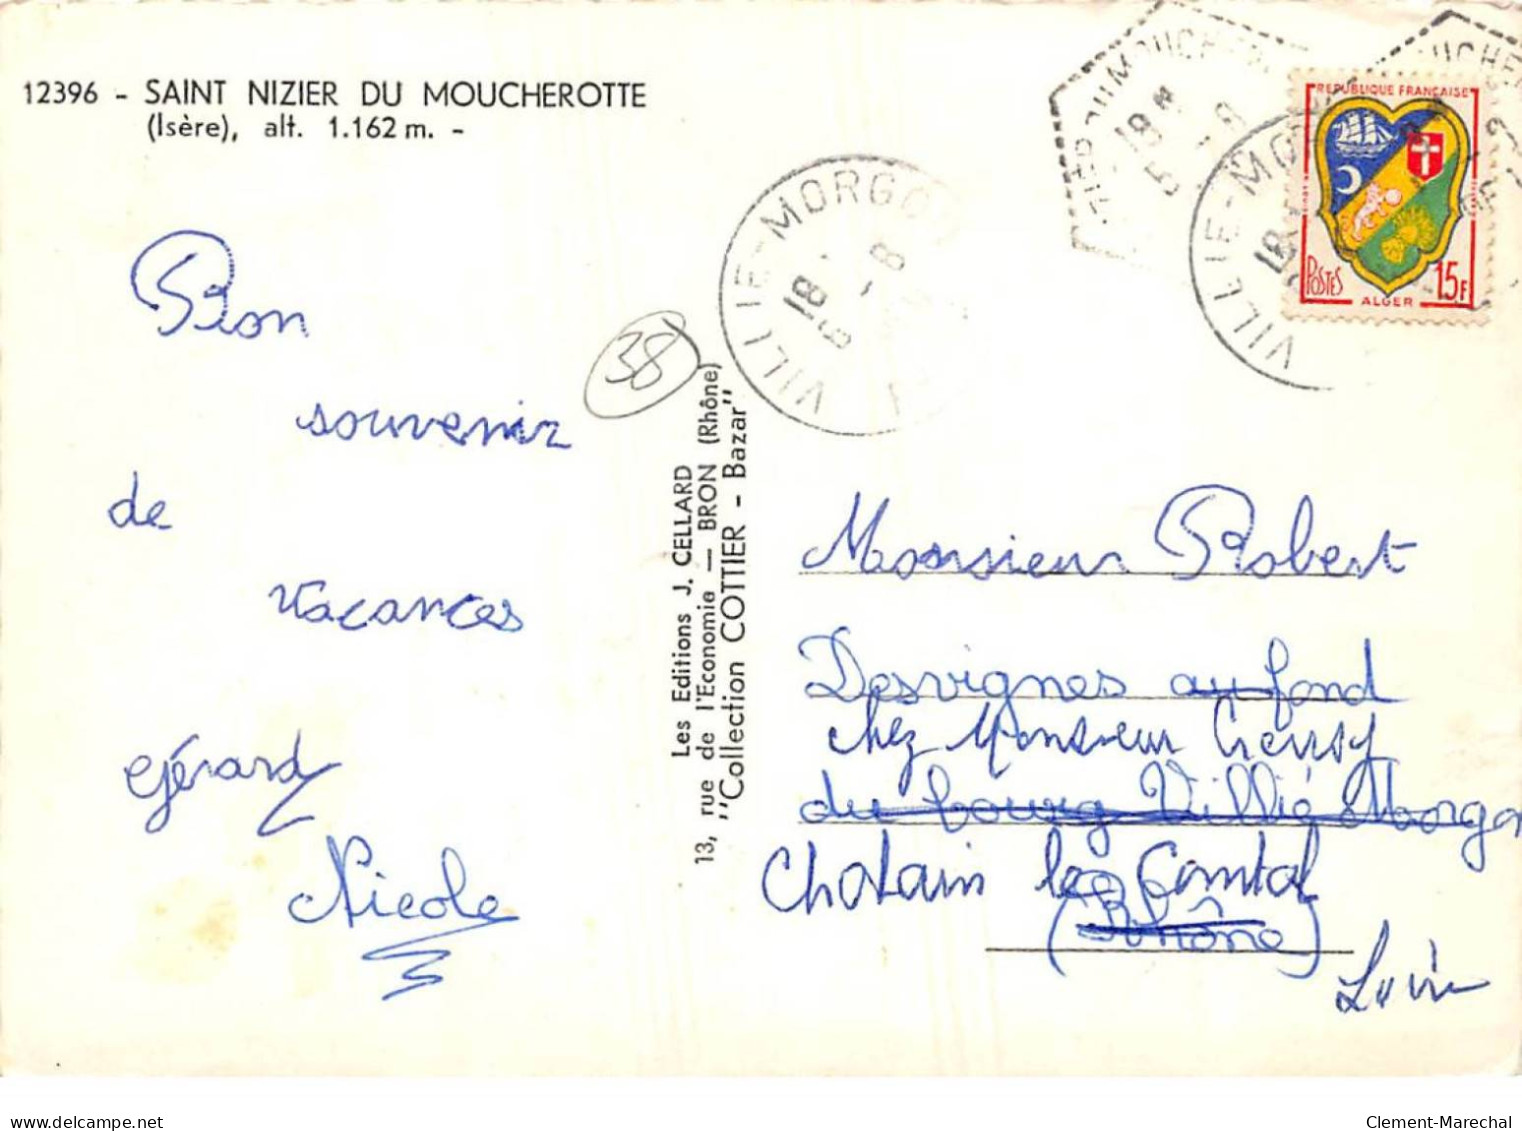 12396 - SAINT NIZIER DU MOUCHEROTTE
(Isère), alt. 1.162 m. -
Bon
souvenir
de
vacances
Gérard
Nicole
38
Les Editions J. CELLARD
13, rue de l'Economie — BRON (Rhône)
"Collection COTTIER - Bazar"
VILLIE-MORGON
18
6 -8
MOUCHEROTTE
18
5 -8
VILLIE-MO
18
REPUBLIQUE FRANÇAISE
POSTES
15F
ALGER
Monsieur Robert
Desvignes au fond
chez Monsieur
du bourg Villié Morgon
Chatain le Comtal
(Rhône)
Loire
Clement-Marechal